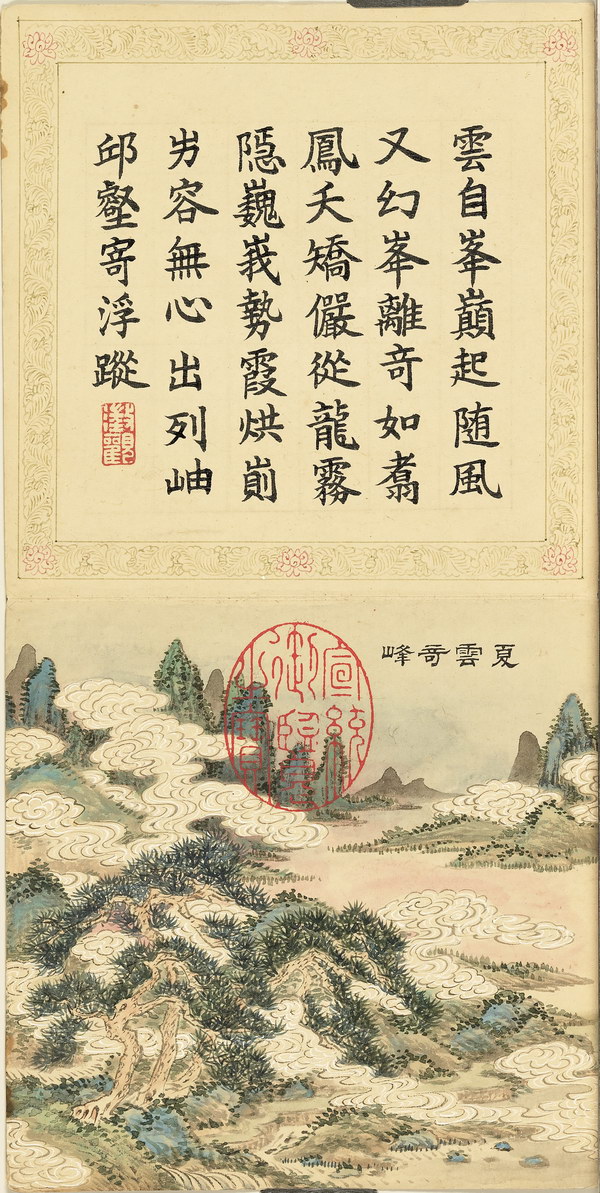 雲自峯巔起随風
又幻峯離竒如翥
鳳夭矯儼從龍霧
隠巍峩勢霞烘崱
屴容無心出列岫
邱壑寄浮蹤
澂觀
夏雲竒峰
宣統
御覽
之寶